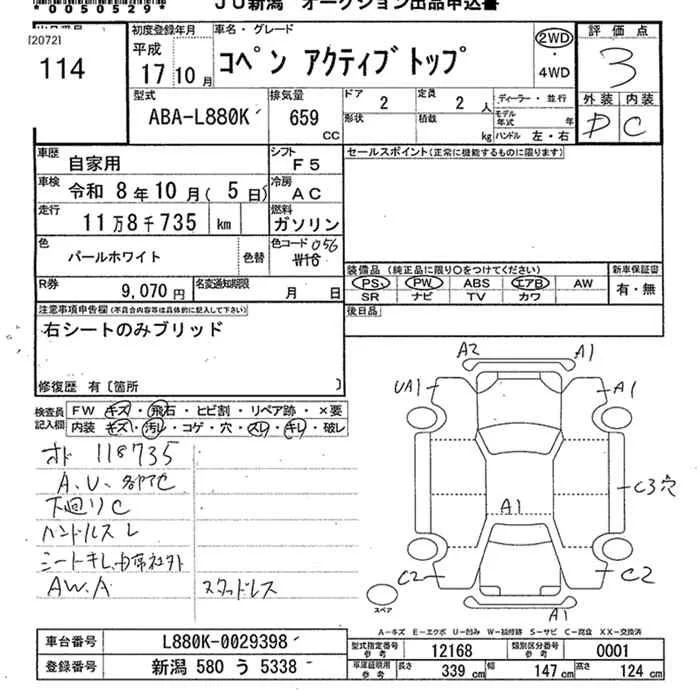 *00505295*
JU新潟 オークション出品申込書
[20721
114
初度登録年月
平成
17年10月
車名・グレード
コペン アクティブトップ
2WD
・
4WD
評価点
3
外装 内装
D C
型式
ABA-L880K
排気量
659
CC
ドア 2
形状
定員 2 人
積載 kg
ディーラー・並行
モデル年式 年
ハンドル 左・右
車歴 自家用
シフト F5
車検 令和 8年10月( 5日)
冷房 AC
走行 11万8千735 km
燃料 ガソリン
色 パールホワイト 色替
色コード 056
W16
R券 9,070円
名変通知期限 月 日
セールスポイント(正常に機能するものに限ります)
装備品 (純正品に限り○をつけてください)
PS PW ABS エアB AW
SR ナビ TV カワ
新車保証書
有・無
後日品
注意事項申告欄(不具合内容等は具体的に記入して下さい)
右シートのみブリッド
修復歴 有〔箇所 〕
検査員記入欄
FW キズ・飛石・ヒビ割・リペア跡・×要
内装 キズ・汚レ・コゲ・穴・スレ・キレ・破レ
オド 118735
A.U.各所C
下廻りC
ハンドルスレ
シートキレ.助席社外
AW.A
スタッドレス
A2 A1
UA1 A1
C3穴
A1
C2 C2
A1
スペア
A-キズ E-エクボ U-凹み W-補修跡 S-サビ C-腐食 XX-交換済
車台番号 L880K-0029398
登録番号 新潟 580 う 5338
型式指定番号 参考 12168
類別区分番号 参考 0001
車庫証明用 参考 長さ 339 cm 幅 147 cm 高さ 124 cm